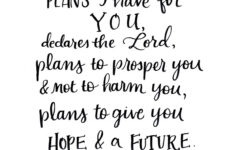 PLANS I have for
YOU,
declares the Lord,
plans to prosper you
& not to harm you,
plans to give you
HOPE & a FUTURE.